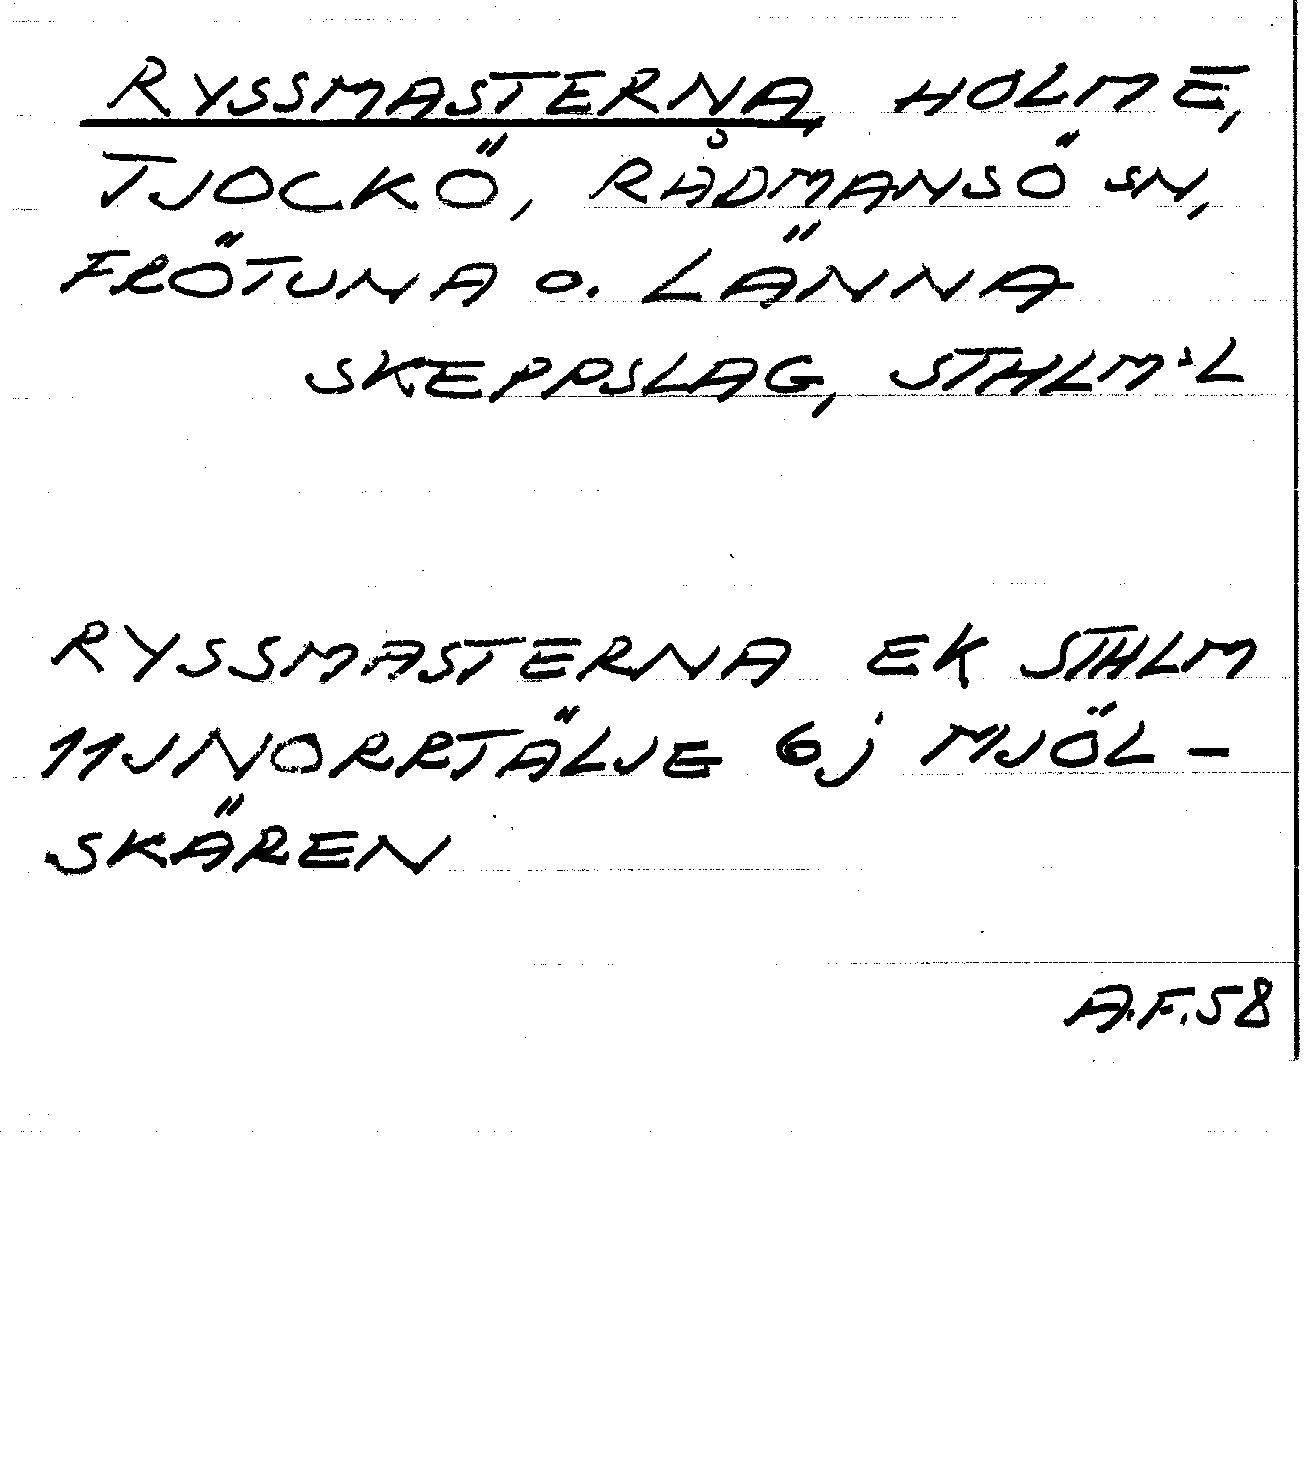 RYSSMASTERNA, HOLME,
TJOCKÖ, RÅDMANSÖ SN,
FRÖTUNA O. LÄNNA
SKEPPSLAG, STHLM:L
RYSSMASTERNA EK STHLM
11JNORRTÄLJE 6j MJÖL-
SKÄREN
A.F.58